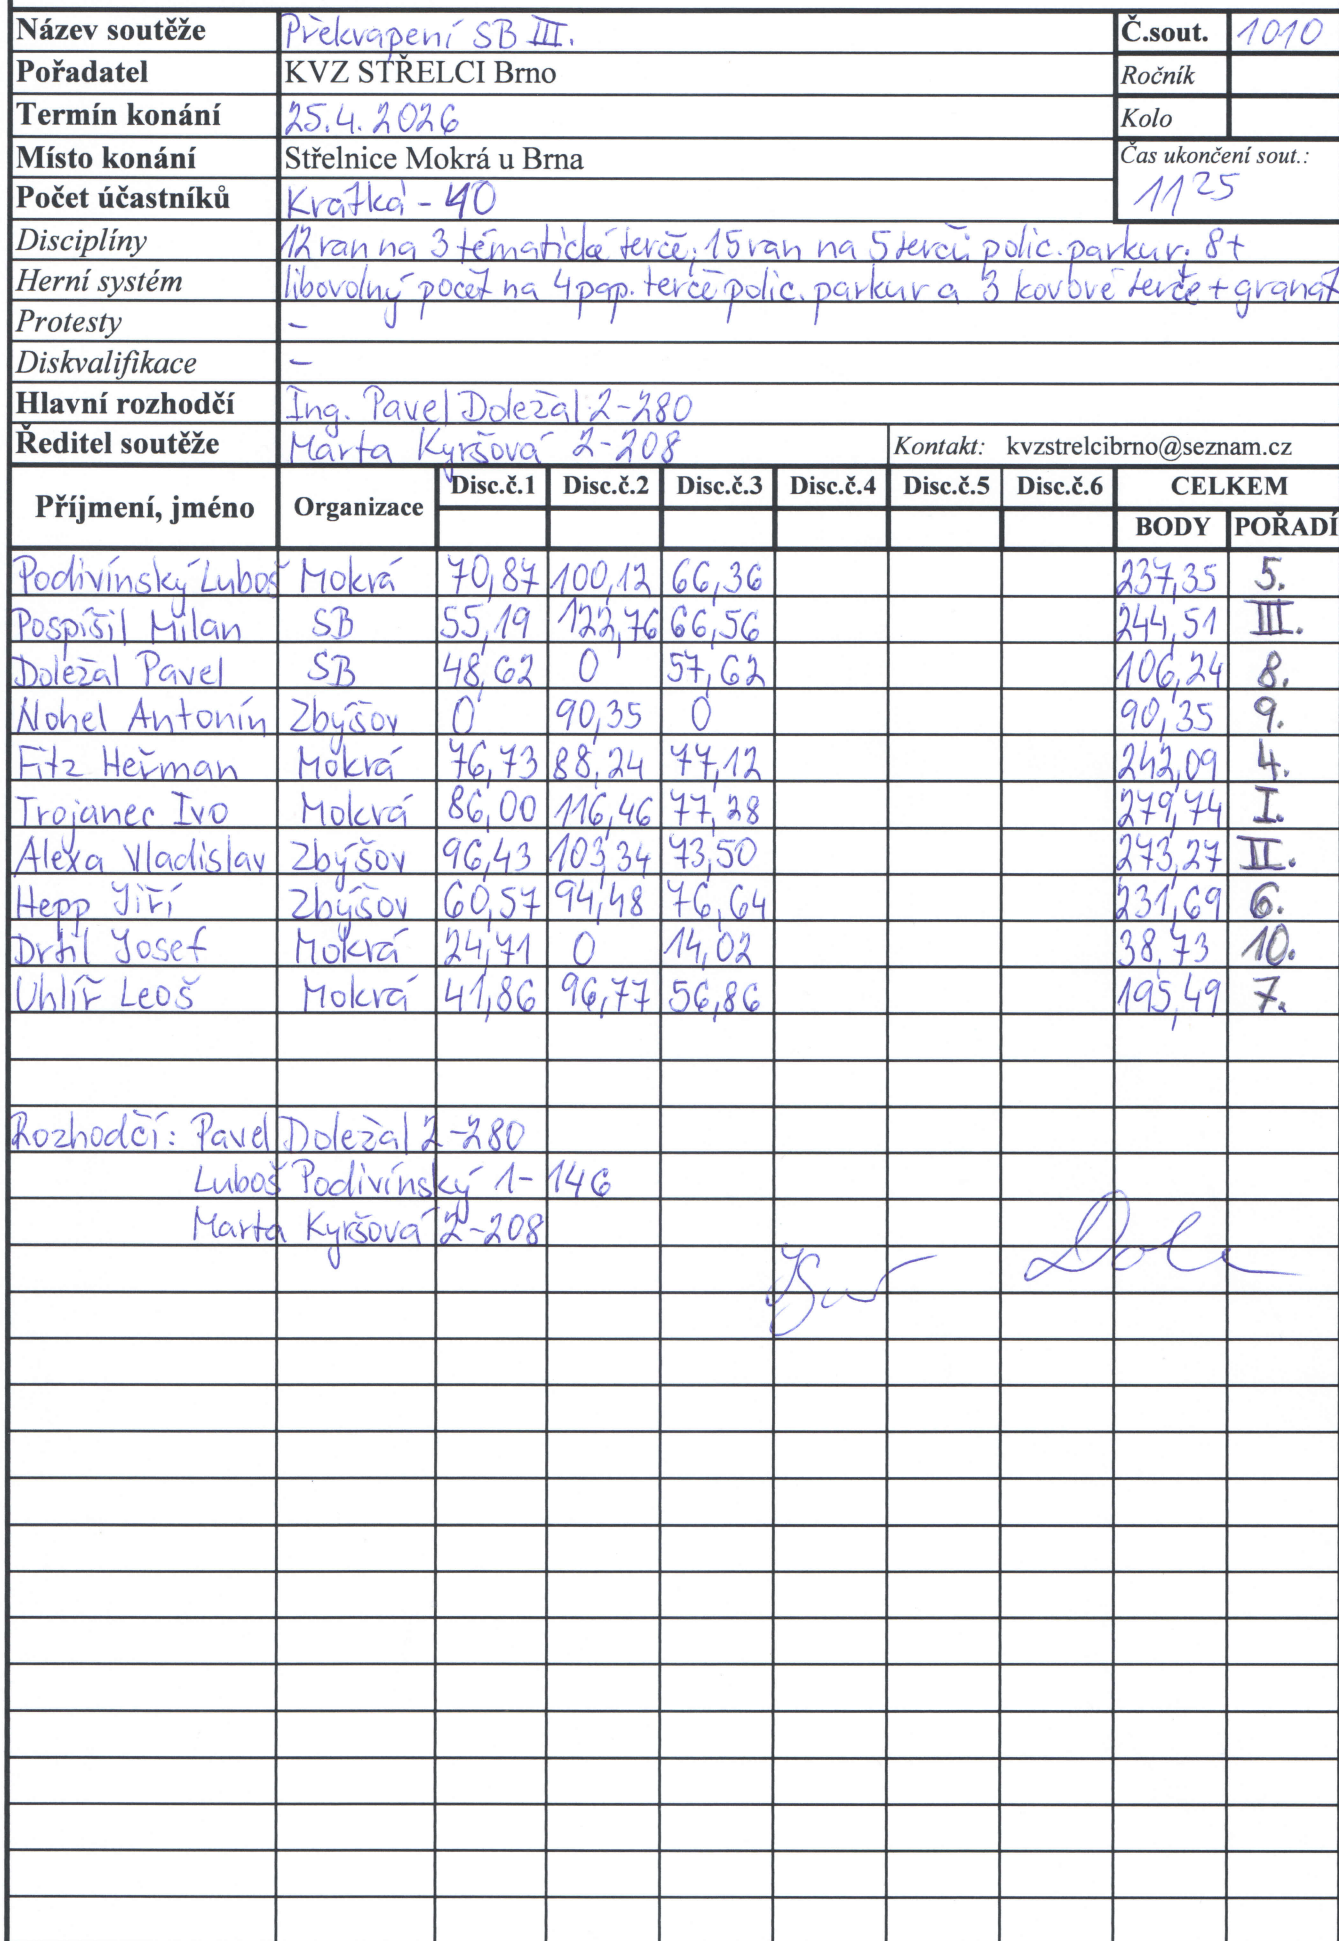 Název soutěže Překvapení SB III. Č.sout. 1010
Pořadatel KVZ STŘELCI Brno Ročník
Termín konání 25.4.2026 Kolo
Místo konání Střelnice Mokrá u Brna Čas ukončení sout.:
Počet účastníků Krátká - 40 11 25
Disciplíny 12 ran na 3 tématické terče; 15 ran na 5 terčů polic. parkur; 8+
Herní systém libovolný počet na 4 pap. terče polic. parkur a 3 kovové terče + granát
Protesty -
Diskvalifikace -
Hlavní rozhodčí Ing. Pavel Doležal 2-280
Ředitel soutěže Marta Kyršová 2-208 Kontakt: kvzstrelcibrno@seznam.cz
Příjmení, jméno Organizace Disc.č.1 Disc.č.2 Disc.č.3 Disc.č.4 Disc.č.5 Disc.č.6 CELKEM
BODY POŘADÍ
Podivínský Luboš Mokrá 70,87 100,12 66,36 237,35 5.
Pospíšil Milan SB 55,19 122,76 66,56 244,51 III.
Doležal Pavel SB 48,62 0 57,62 106,24 8.
Nohel Antonín Zbýšov 0 90,35 0 90,35 9.
Fitz Heřman Mokrá 76,73 88,24 77,12 242,09 4.
Trojanec Ivo Mokrá 86,00 116,46 77,28 279,74 I.
Alexa Vladislav Zbýšov 96,43 103,34 73,50 273,27 II.
Hepp Jiří Zbýšov 60,57 94,48 76,64 231,69 6.
Drtil Josef Mokrá 24,71 0 14,02 38,73 10.
Uhlíř Leoš Mokrá 41,86 96,77 56,86 195,49 7.
Rozhodčí: Pavel Doležal 2-280
Luboš Podivínský 1-146
Marta Kyršová 2-208